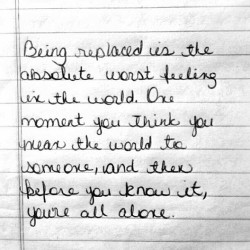 Being replaced is the
absolute worst feeling
in the world. One
moment you think you
mean the world to
someone, and then
before you know it,
you're all alone.